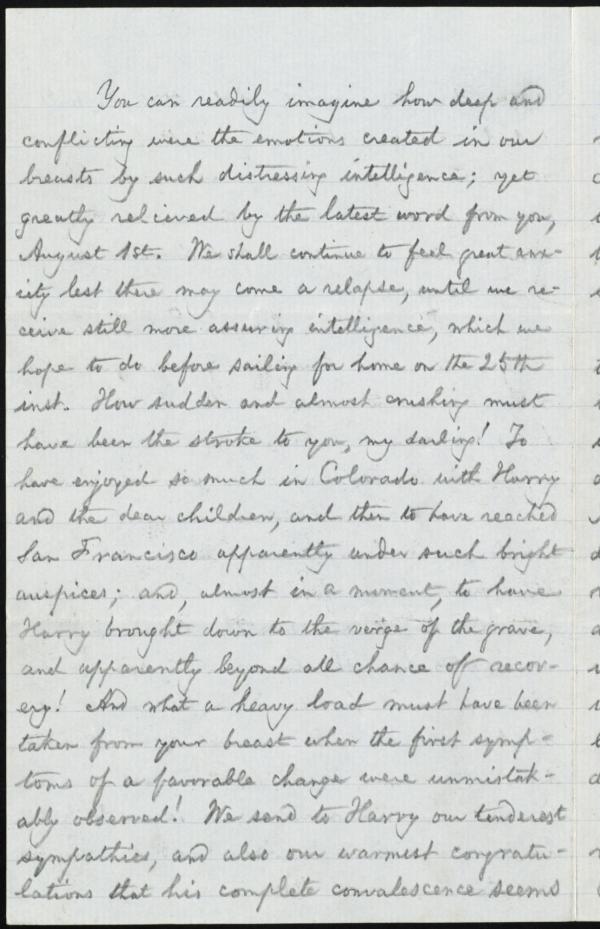 You can readily imagine how deep and
conflicting were the emotions created in our
breasts by such distressing intelligence; yet
greatly relieved by the latest word from you,
August 1st. We shall continue to feel great anx-
iety lest there may come a relapse, until we re-
ceive still more assuring intelligence, which we
hope to do before sailing for home on the 25th
inst. How sudden and almost crushing must
have been the stroke to you, my darling! To
have enjoyed so much in Colorado with Harry
and the dear children, and then to have reached
San Francisco apparently under such bright
auspices; and, almost in a moment, to have
Harry brought down to the verge of the grave,
and apparently beyond all chance of recov-
ery! And what a heavy load must have been
taken from your breast when the first symp-
toms of a favorable change were unmistak-
ably observed! We send to Harry our tenderest
sympathies, and also our warmest congratu-
lations that his complete convalescence seems